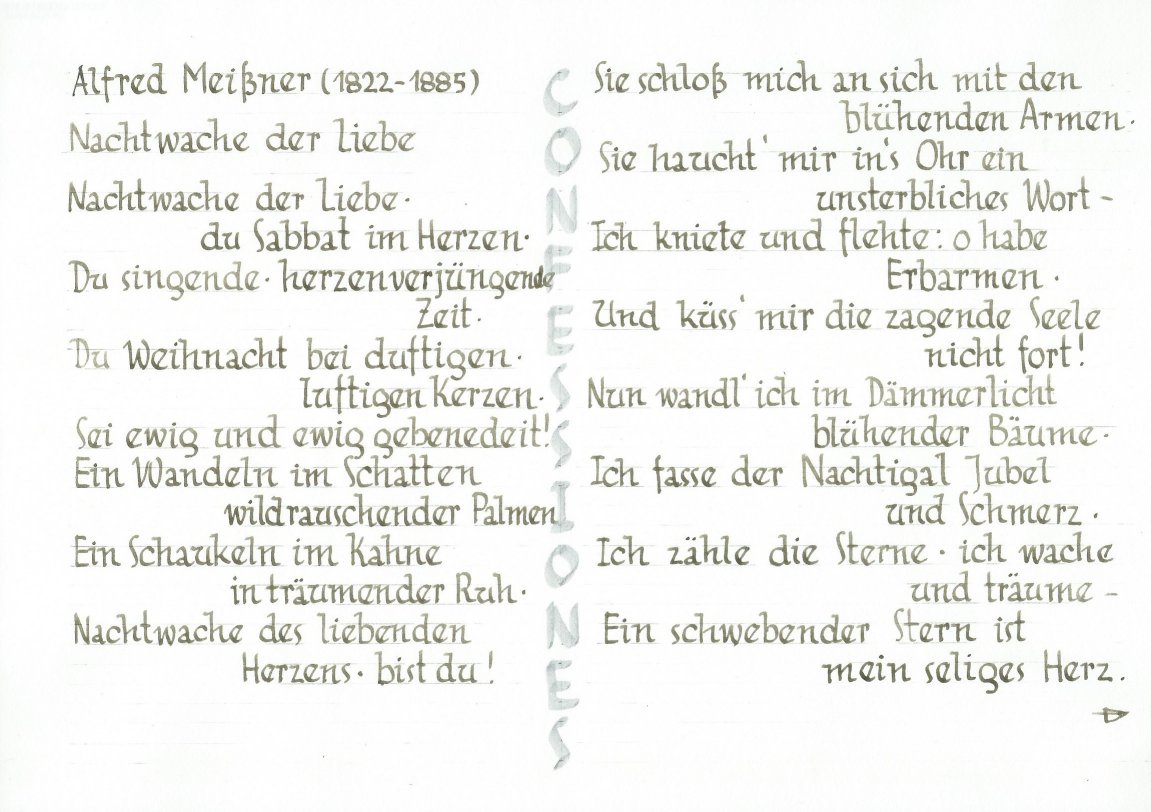 Alfred Meißner (1822-1885)
Nachtwache der Liebe
Nachtwache der Liebe·
du Sabbat im Herzen·
Du singende· herzenverjüngende
Zeit·
Du Weihnacht bei duftigen·
luftigen Kerzen·
Sei ewig und ewig gebenedeit!
Ein Wandeln im Schatten
wildrauschender Palmen
Ein Schaukeln im Kahne
in träumender Ruh·
Nachtwache des liebenden
Herzens· bist du!
CONFESSIONES
Sie schloß mich an sich mit den
blühenden Armen·
Sie haucht' mir in's Ohr ein
unsterbliches Wort -
Ich kniete und flehte: o habe
Erbarmen ·
Und küss' mir die zagende Seele
nicht fort!
Nun wandl' ich im Dämmerlicht
blühender Bäume·
Ich fasse der Nachtigal Jubel
und Schmerz ·
Ich zähle die Sterne · ich wache
und träume -
Ein schwebender Stern ist
mein seliges Herz.